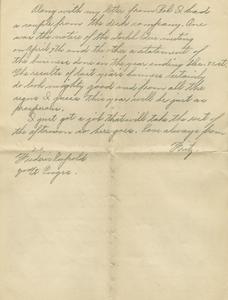 Along with my letter from Bob I had
a couple from the disk company. One
was the notice of the Stockholders meeting
on April 7th and the other a statement of
the business done in the year ending Dec. 31st.
The results of last years business certainly
do look mighty good and from all the
signs I guess this year will be just as
prosperous.
I just got a job that will take the rest of
the afternoon so here goes. Love always from
Fritz.